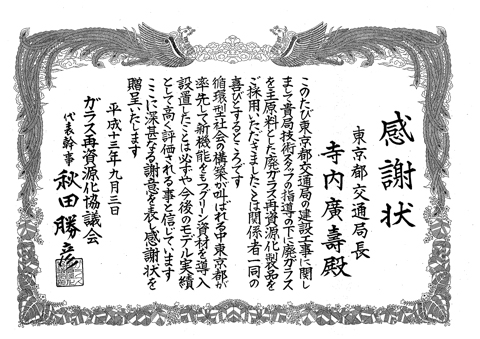 感謝状
東京都交通局長
寺内廣壽殿
このたび東京都交通局の建設工事に関し
まして貴局技術スタッフの指導の下に廃ガラス
を主原料とした廃ガラス再資源化製品を
ご採用いただきましたことは関係者一同の
喜びとするところです
循環型社会の構築が叫ばれる中東京都が
率先して新機能をもつグリーン資材を導入
設置したことは必ずや今後のモデル実績
として高く評価される事と信じています
ここに深甚なる謝意を表し感謝状を
贈呈いたします
平成十三年九月三日
ガラス再資源化協議会
代表幹事 秋田勝彦